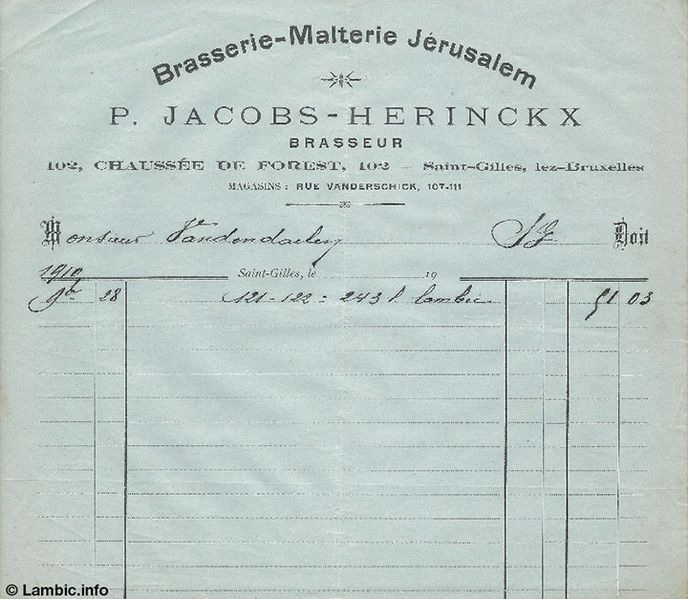 Brasserie-Malterie Jérusalem
P. JACOBS-HERINCKX
BRASSEUR
102, CHAUSSÉE DE FOREST, 102 — Saint-Gilles, lez-Bruxelles
MAGASINS : RUE VANDERSCHICK, 107-111
Monsieur SG Doit
1910 Saint-Gilles, le 19
9re 28 121-122 = 243 l. lambic 51 03
© Lambic.info